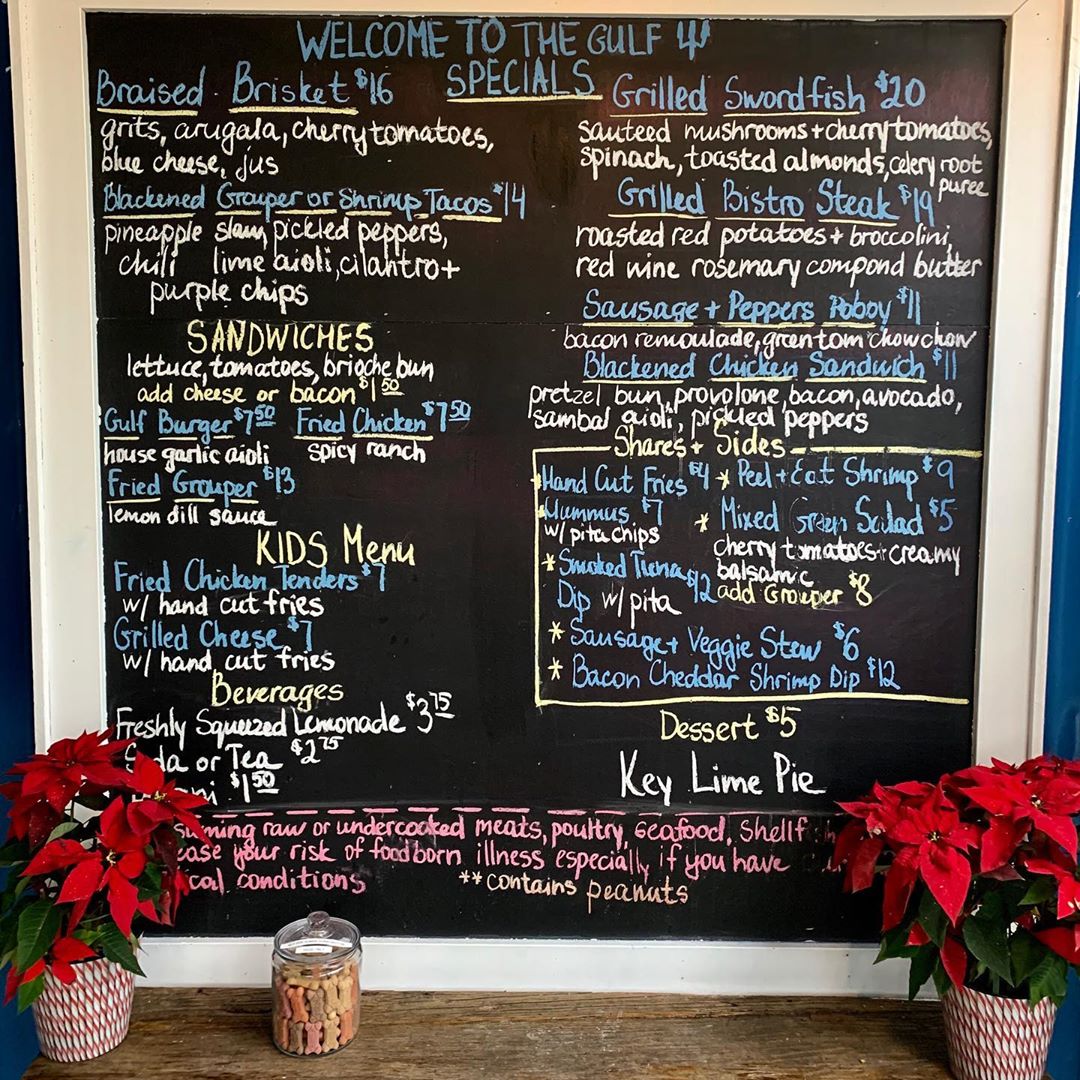 WELCOME TO THE GULF
SPECIALS
Braised Brisket $16
grits, arugala, cherry tomatoes,
blue cheese, jus
Blackened Grouper or Shrimp Tacos $14
pineapple slaw, pickled peppers,
chili lime aioli, cilantro +
purple chips
SANDWICHES
lettuce, tomatoes, brioche bun
add cheese or bacon $1.50
Gulf Burger $7.50 Fried Chicken $7.50
house garlic aioli spicy ranch
Fried Grouper $13
lemon dill sauce
KIDS Menu
Fried Chicken Tenders $7
w/ hand cut fries
Grilled Cheese $7
w/ hand cut fries
Beverages
Freshly Squeezed Lemonade $3.75
Soda or Tea $2.75
$1.50
Grilled Swordfish $20
sauteed mushrooms + cherry tomatoes,
spinach, toasted almonds, celery root
puree
Grilled Bistro Steak $19
roasted red potatoes + broccolini,
red wine rosemary compond butter
Sausage + Peppers Poboy $11
bacon remoulade, green tom chow chow
Blackened Chicken Sandwich $11
pretzel bun, provolone, bacon, avocado,
sambal aioli, pickled peppers
Shares + Sides
*Hand Cut Fries $4
*Hummus $7
w/ pita chips
*Smoked Tuna $12
Dip w/ pita
* Peel + Eat Shrimp $9
* Mixed Green Salad $5
cherry tomatoes + creamy
balsamic
add Grouper $8
* Sausage + Veggie Stew $6
* Bacon Cheddar Shrimp Dip $12
Dessert $5
Key Lime Pie
raw or undercooked meats, poultry, seafood,
your risk of foodborn illness especially if you have
conditions **contains peanuts